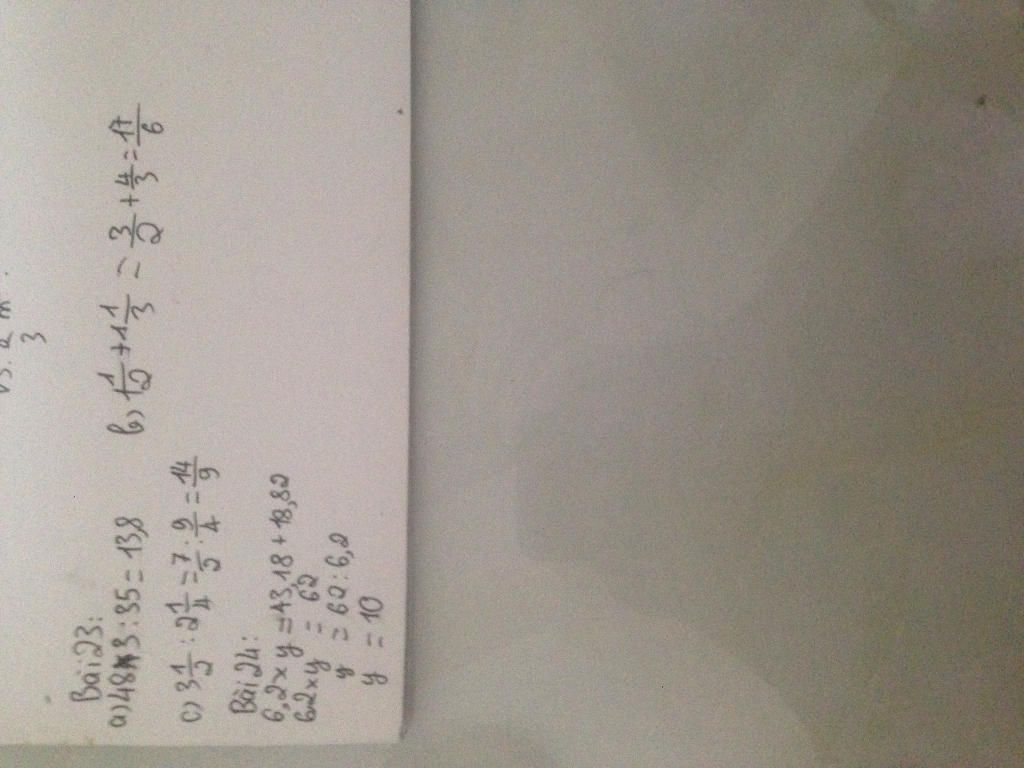 3
Bài 23:
a) 483 : 35 = 13,8 b) 1 1/2 + 1 1/3 = 3/2 + 4/3 = 17/6
c) 3 1/2 : 2 1/4 = 7/2 : 9/4 = 14/9
Bài 24:
6,2 x y = 43,18 + 18,82
6.2 x y = 62
y = 62 : 6,2
y = 10